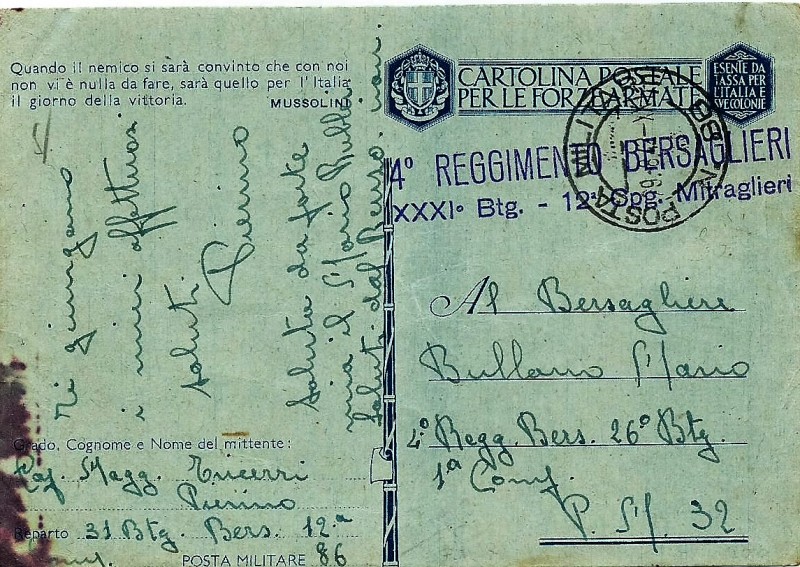 Quando il nemico si sarà convinto che con noi
non vi è nulla da fare, sarà quello per l'Italia
il giorno della vittoria.
MUSSOLINI
Ti giungano
i miei affettuosi
saluti.
Pierino
Saluta da forte
mia il Mario Bulla
Saluti dal Berso
Grado, Cognome e Nome del mittente:
Magg.
Pierino
Reparto 31 Btg. Bers. 12ª
Comp.
POSTA MILITARE 86
CARTOLINA POSTALE
PER LE FORZE ARMATE
ESENTE DA
TASSA PER
L'ITALIA E
VE COLONIE
POSTA MILITARE
4° REGGIMENTO BERSAGLIERI
XXXI° Btg. - 12ª Cpg. Mitraglieri
Al Bersagliere
Bullano Mario
4° Regg. Bers. 26° Btg.
1ª Comp.
P. M. 32